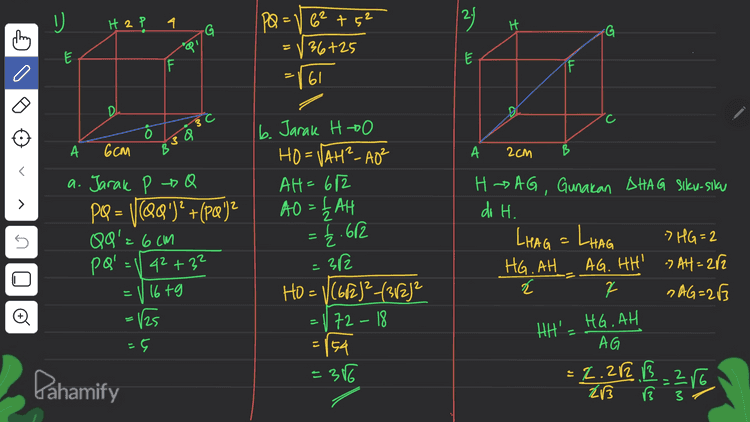 1)
H 2 P 4 G
Q'
E F
D 3 C
O 3 Q
A 6cm B
a. Jarak P → Q
PQ = √(QQ')² + (PQ')²
QQ' = 6 cm
PQ' = √4² + 3²
= √16 + 9
= √25
= 5
PQ = √6² + 5²
= √36 + 25
= √61
b. Jarak H → O
HO = √AH² - AO²
AH = 6√2
AO = 1/2 AH
= 1/2 . 6√2
= 3√2
HO = √(6√2)² - (3√2)²
= √72 - 18
= √54
= 3√6
2)
H G
E F
D C
A 2cm B
H → AG, Gunakan ΔHAG siku-siku
di H.
LHAG = LHAG
HG. AH / 2 = AG. HH' / 2
→ HG = 2
→ AH = 2√2
→ AG = 2√3
HH' = HG. AH / AG
= 2. 2√2 / 2√3 . √3 / √3 = 2/3 √6
Pahamify